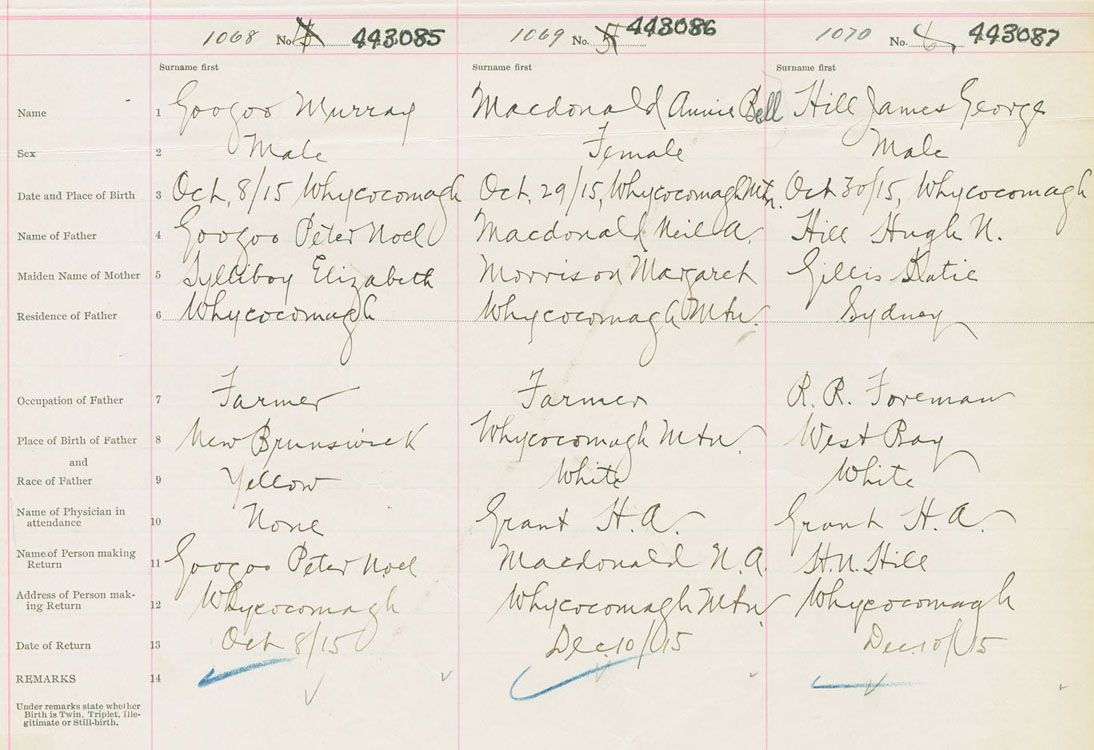 1068 No. 443085 1069 No. 5 443086 1070 No. 6 443087
Surname first Surname first Surname first
Name 1 Googoo Murray Macdonald Annie Bell Hill James George
Sex 2 Male Female Male
Date and Place of Birth 3 Oct. 8/15 Whycocomagh Oct. 29/15, Whycocomagh Mtn. Oct 30/15, Whycocomagh
Name of Father 4 Googoo Peter Noel Macdonald Neil A. Hill Hugh N.
Maiden Name of Mother 5 Sylliboy Elizabeth Morrison Margaret Gillis Katie
Residence of Father 6 Whycocomagh Whycocomagh Mtn. Sydney
Occupation of Father 7 Farmer Farmer R. R. Foreman
Place of Birth of Father 8 New Brunswick Whycocomagh Mtn West Bay
and
Race of Father 9 Yellow White White
Name of Physician in
attendance 10 None Grant H. A. Grant H. A.
Name of Person making
Return 11 Googoo Peter Noel Macdonald N. A. H. N. Hill
Address of Person mak-
ing Return 12 Whycocomagh Whycocomagh Mtn Whycocomagh
Date of Return 13 Oct 8/15 Dec. 10/15 Dec 10/15
REMARKS 14
Under remarks state whether
Birth is Twin, Triplet, Ille-
gitimate or Still-birth.